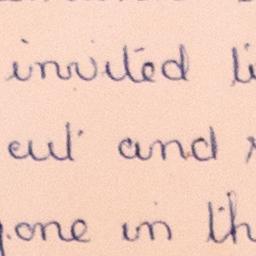 invited li
cut and
one in th